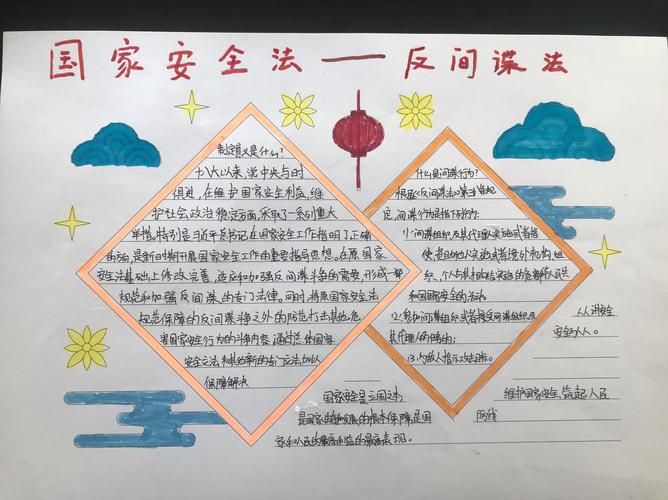 国家安全法——反间谍法
制定意义是什么?
十八大以来,党中央与时
俱进,在维护国家安全利益,维
护社会政治稳定方面,采取了一系列重大
举措,特别是习近平总书记在国家安全工作指明了正确
方向,是新时期开展国家安全工作的重要指导思想。在原国家
安全法基础上修改完善,适应和加强反间谍斗争的需要,形成一部
规范和加强反间谍的专门法律。同时,将原国家安全法
规范保障的反间谍将之外的防范打击其他危
害国家安全行为的斗争内容,通过总的国家
安全立法和其他新的专门立法加以
保障解决
什么是间谍行为?
根据《反间谍法》第三十八条规
定,间谍行为是指下列行为:
(1)间谍组织及其代理人实施或者指
使者,或者他人实施或者境外机构、组
织、个人与其相勾结实施的危害中华人民共
和国国家安全的活动。
(2)参加间谍组织或者接受间谍组织及
其代理人的任务的;
(3)为敌人指示攻击目标。
人人讲安全
安全为人人。
国家安全是立国之本
是国家生存和发展的根本保障,是国
家和人民的最高利益的最高表现。
维护国家安全,筑起人民
防线